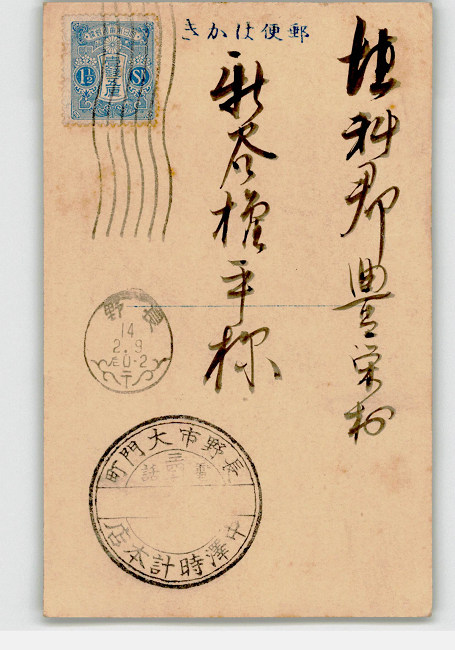 郵便はかき
壹錢五厘
1½ Sn
埴科郡豊栄村
新谷権平様
長野
14
2.9
后0-2
長野市大門町
電話
中澤時計本店